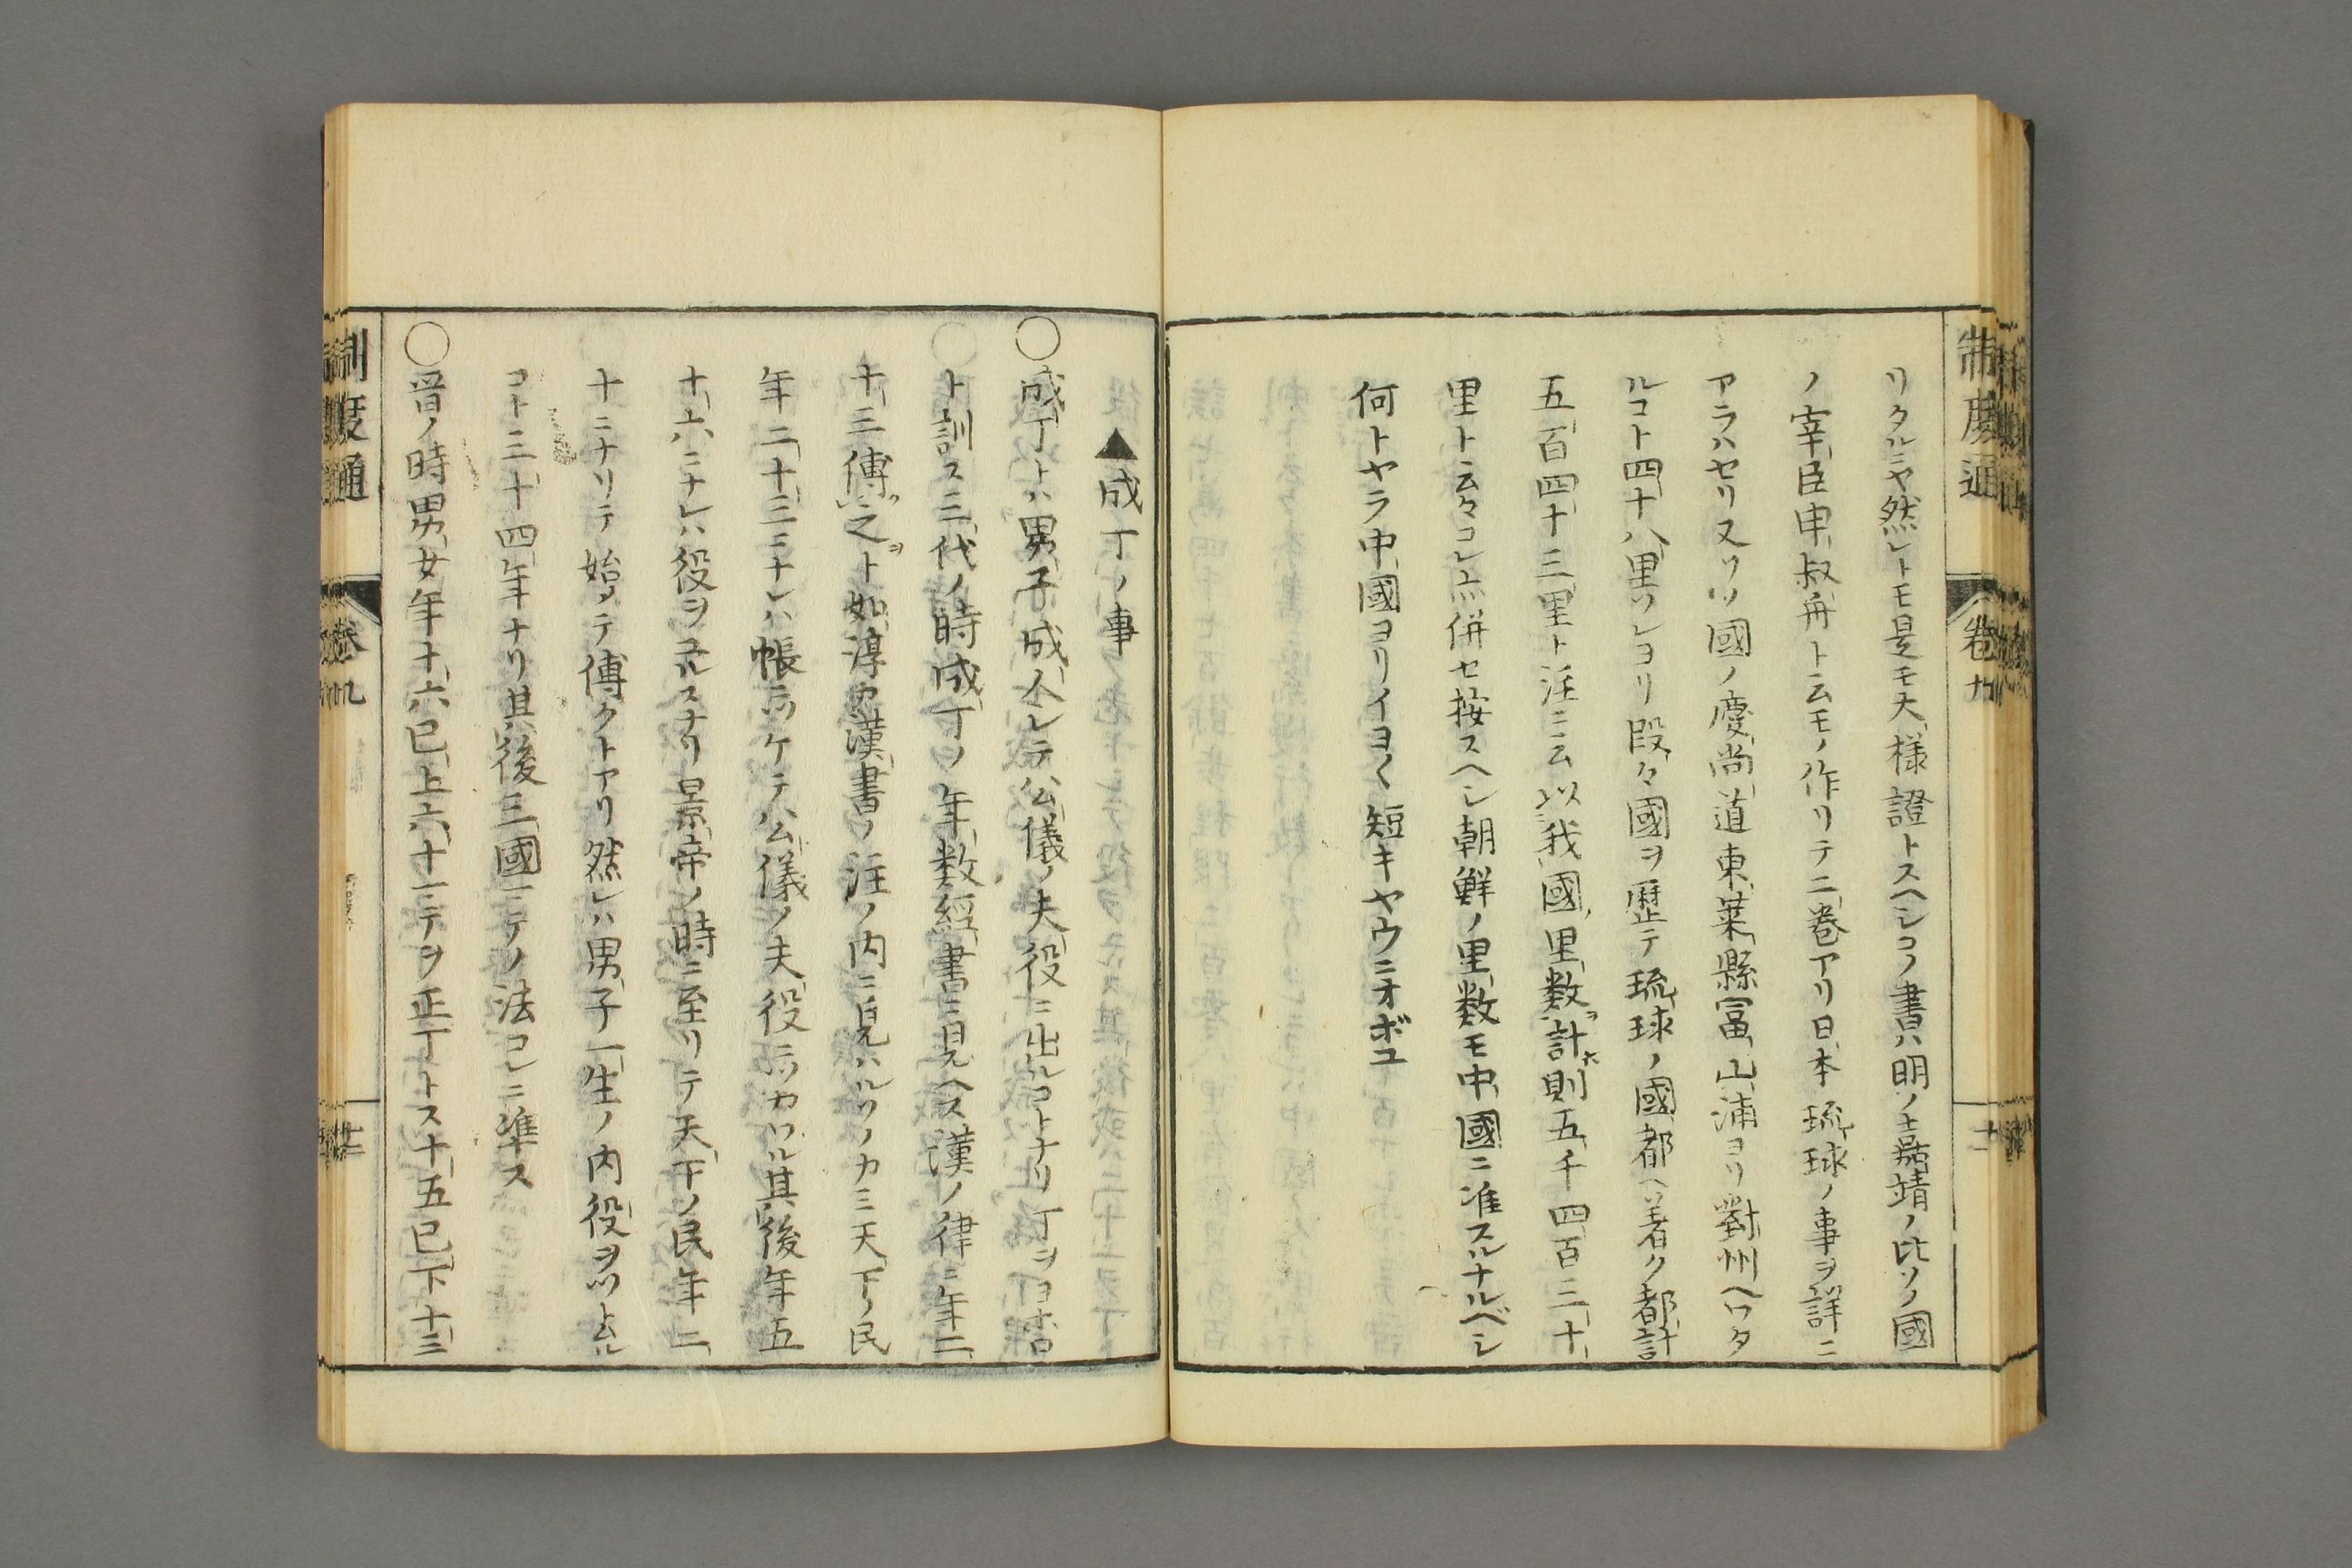 制度通
卷九
リタルニヤ然レトモ是モ大様證トスヘシコノ書ハ明ノ嘉靖ノ比ソノ國
ノ宰臣申叔舟ト云モノ作リテ二巻アリ日本琉球ノ事ヲ詳ニ
アラハセリ又ソノ國ノ慶尚道東萊縣冨山浦ヨリ對州ヘワタ
ルコト四十八里ソレヨリ段々國ヲ歴テ琉球ノ國都ヘ着ク都計
五百四十三里ト注ニ云以我國里数計則五千四百三十
里ト云々コレ亦併セ按スヘシ朝鮮ノ里数モ中國ニ准スルナルベシ
何トヤラ中國ヨリイヨ〱短キヤウニオボユ
▲成丁ノ事
〇成丁トハ男子成人シテ公儀ノ夫役ニ出ルコトナリ丁ヲヨホロ
ト訓ス三代ノ時成丁ノ年数經書ニ見ヘス漢ノ律ニ年二
十三傅之ト如淳カ漢書ノ注ノ内ニ見ハルソノカミ天下ノ民
年二十三ニナレハ帳ニツケテ公儀ノ夫役ニツカワル其後年五
十六ニナレハ役ヲユルスナリ景帝ノ時ニ至リテ天下ノ民年二
十ニナリテ始メテ傅クトアリ然レハ男子一生ノ内役ヲツトムル
コト三十四年ナリ其後三國ニテノ法コレニ準ス
〇晉ノ時男女年十六已上六十ニテヲ正丁トス十五已下十三
制度通
卷九